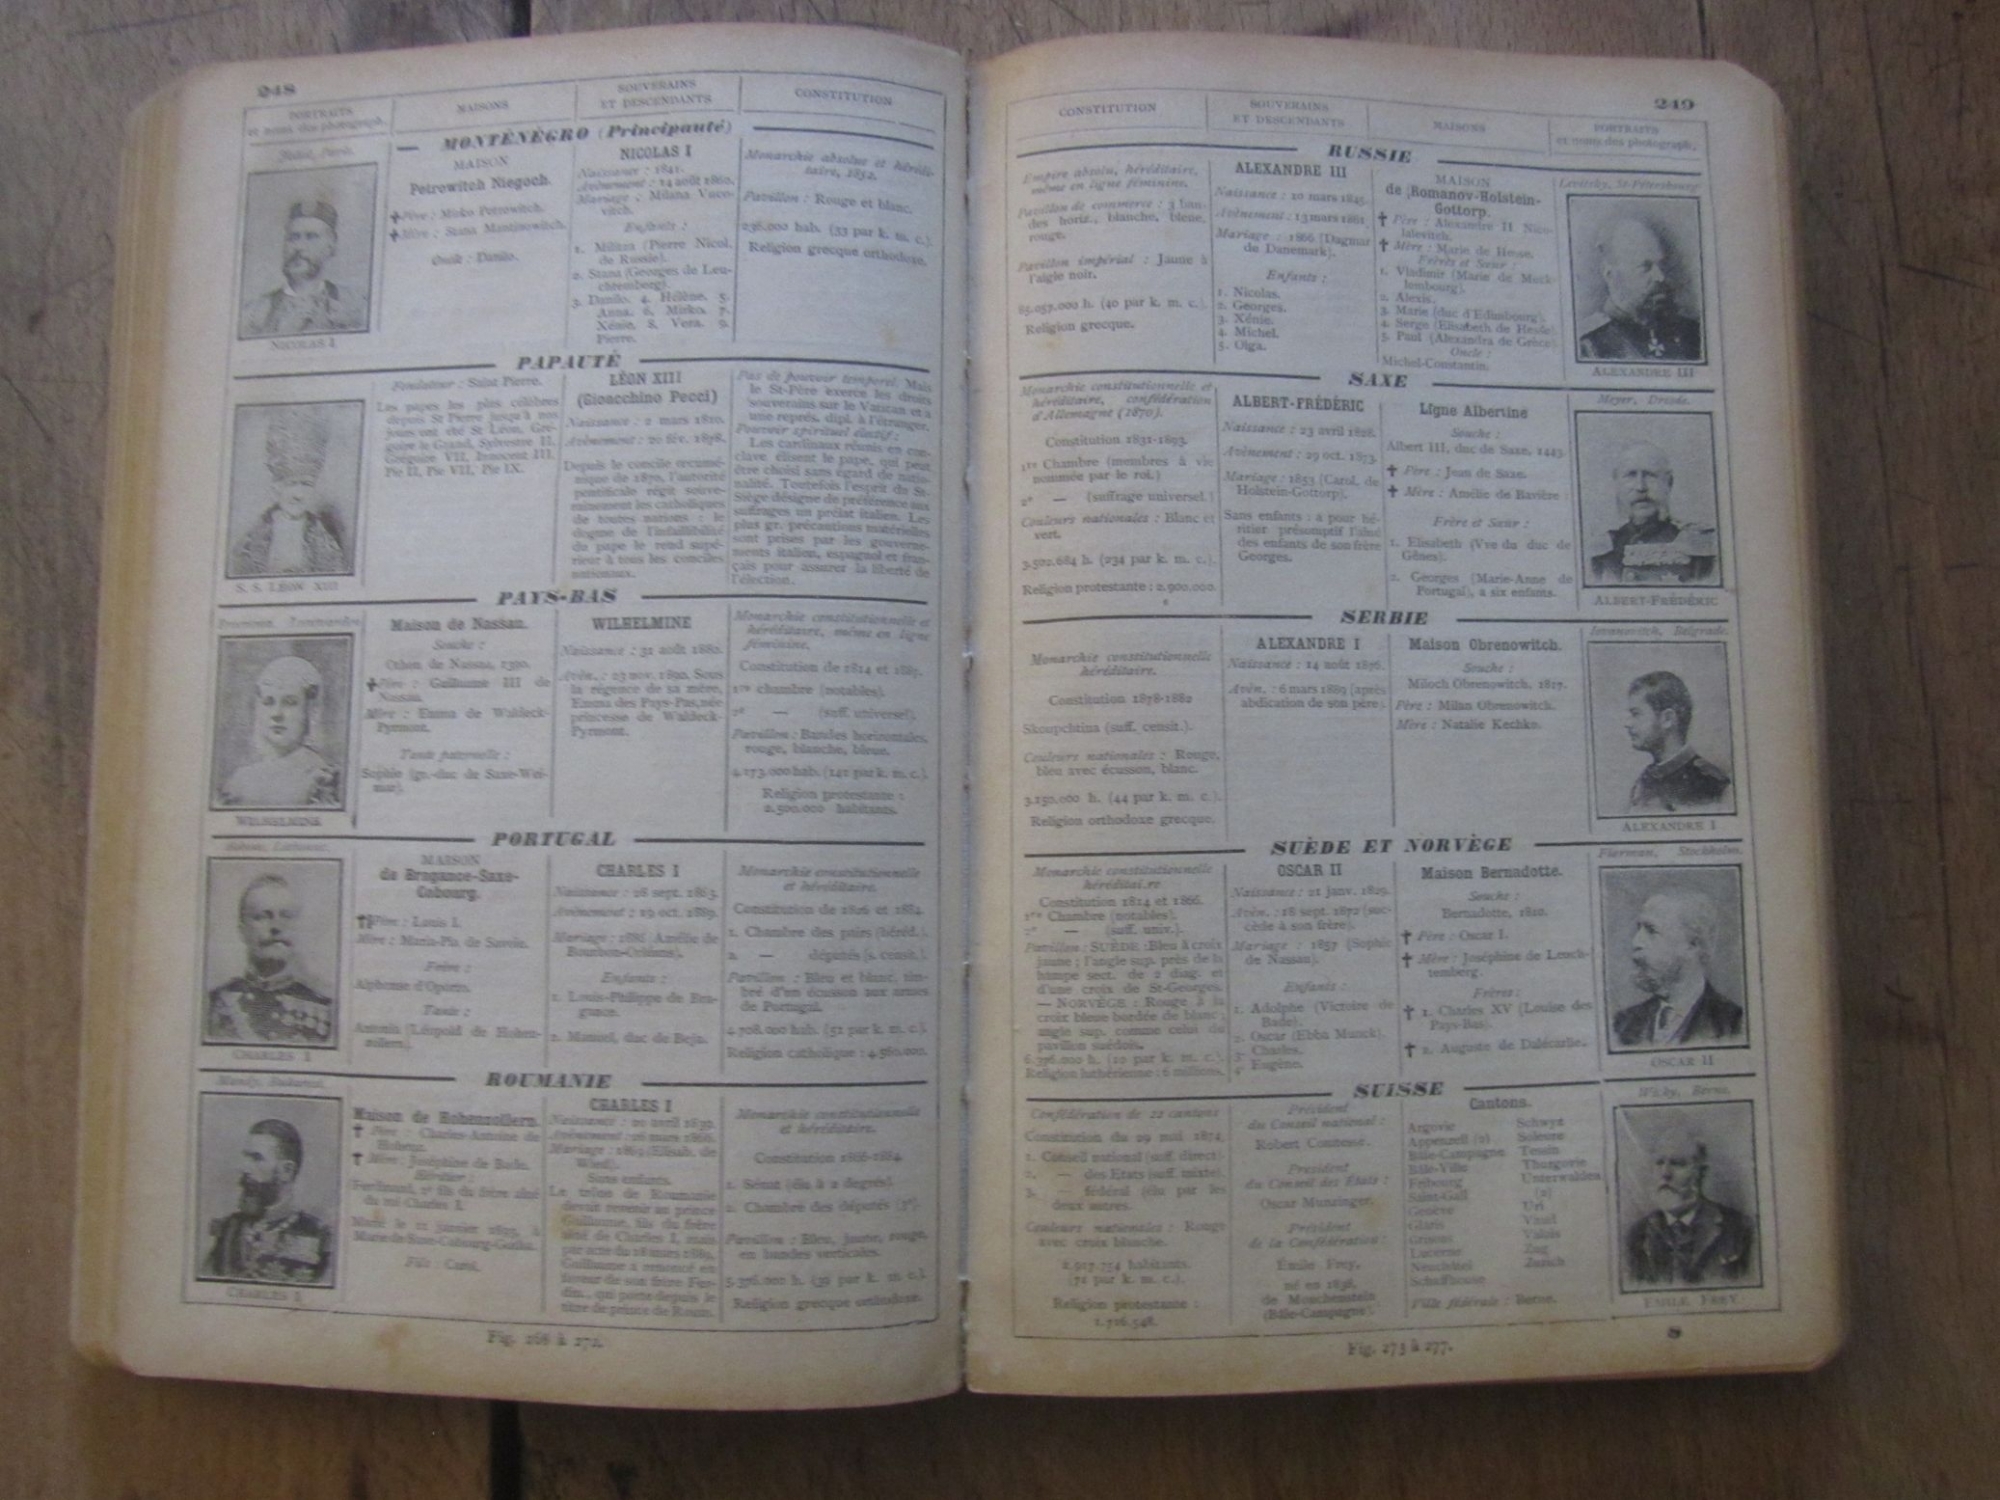 248
PORTRAITS
et noms des photograph.
MAISONS
SOUVERAINS
ET DESCENDANTS
CONSTITUTION
MONTÉNÉGRO (Principauté)
NICOLAS I
MAISON
Petrowitch Niegoch.
✝ Père : Mirko Petrowitch.
✝ Mère : Stana Mantinowitch.
Oncle : Danilo.
NICOLAS I
Naissance : 1841.
Avènement : 14 août 1860.
Mariage : Milana Vuco-
vitch.
Enfants :
1. Militza (Pierre Nicol.
de Russie).
2. Stana (Georges de Leu-
chtemberg).
3. Danilo. 4. Hélène. 5.
Anna. 6. Mirko. 7.
Xénie. 8. Vera. 9.
Pierre.
Monarchie absolue et hérédi-
taire, 1852.
Pavillon : Rouge et blanc.
236.000 hab. (33 par k. m. c.).
Religion grecque orthodoxe.
PAPAUTÉ
S. S. LÉON XIII
Fondateur : Saint Pierre.
Les papes les plus célèbres
depuis St Pierre jusqu'à nos
jours ont été St Léon, Gré-
goire le Grand, Sylvestre II,
Grégoire VII, Innocent III,
Pie II, Pie VII, Pie IX.
LÉON XIII
(Gioacchino Pecci)
Naissance : 2 mars 1810.
Avènement : 20 fév. 1878.
Depuis le concile œcumé-
nique de 1870, l'autorité
pontificale régit souve-
rainement les catholiques
de toutes nations : le
dogme de l'infaillibilité
du pape le rend supé-
rieur à tous les conciles
nationaux.
Pas de pouvoir temporel. Mais
le St-Père exerce les droits
souverains sur le Vatican et a
une représ. dipl. à l'étranger.
Pouvoir spirituel électif :
Les cardinaux réunis en con-
clave élisent le pape, qui peut
être choisi sans égard de natio-
nalité. Toutefois l'esprit du St-
Siège désigne de préférence aux
suffrages un prélat italien. Les
plus gr. précautions matérielles
sont prises par les gouverne-
ments italien, espagnol et fran-
çais pour assurer la liberté de
l'élection.
PAYS-BAS
WILHELMINE
Maison de Nassau.
Souche :
Othon de Nassau, 1290.
✝ Père : Guillaume III de
Nassau.
Mère : Emma de Waldeck-
Pyrmont.
Tante paternelle :
Sophie (gr.-duc de Saxe-Wei-
mar).
WILHELMINE
Naissance : 31 août 1880.
Avèn. : 23 nov. 1890. Sous
la régence de sa mère,
Emma des Pays-Pas, née
princesse de Waldeck-
Pyrmont.
Monarchie constitutionnelle et
héréditaire, même en ligne
féminine.
Constitution de 1814 et 1887.
1re chambre (notables).
2e — (suff. universel).
Pavillon : Bandes horizontales,
rouge, blanche, bleue.
4.173.000 hab. (141 par k. m. c.).
Religion protestante :
2.500.000 habitants.
PORTUGAL
CHARLES I
MAISON
de Bragance-Saxe-
Cobourg.
✝ Père : Louis I.
Mère : Maria-Pia de Savoie.
Frère :
Alphonse d'Oporto.
Tante :
Antonia (Léopold de Hohen-
zollern).
CHARLES I
Naissance : 28 sept. 1863.
Avènement : 19 oct. 1889.
Mariage : 1886 (Amélie de
Bourbon-Orléans).
Enfants :
1. Louis-Philippe de Bra-
gance.
2. Manuel, duc de Beja.
Monarchie constitutionnelle
et héréditaire.
Constitution de 1826 et 1884.
1. Chambre des pairs (héréd.).
2. — députés (s. censit.).
Pavillon : Bleu et blanc, tim-
bré d'un écusson aux armes
de Portugal.
4.708.000 hab. (51 par k. m. c.).
Religion catholique : 4.560.000.
ROUMANIE
CHARLES I
Maison de Hohenzollern.
✝ Père : Charles-Antoine de
Hohenz.
✝ Mère : Joséphine de Bade.
Héritier :
Ferdinand, 2e fils du frère aîné
du roi Charles I.
Marie de Saxe-Cobourg-Gotha.
Fils : Carol.
CHARLES I
Naissance : 20 avril 1839.
Avènement : 26 mars 1866.
Mariage : 1869 (Elisab. de
Wied).
Sans enfants.
Le trône de Roumanie
devait revenir au prince
Guillaume, fils du frère
aîné de Charles I, mais
par acte du 18 mars 1889,
Guillaume a renoncé en
faveur de son frère Fer-
din., qui porte depuis le
titre de prince de Roum.
Monarchie constitutionnelle
et héréditaire.
Constitution 1866-1884
1. Sénat (élu à 2 degrés).
2. Chambre des députés
Pavillon : Bleu, jaune, rouge,
en bandes verticales.
5.376.000 h. (39 par k. m. c.).
Religion grecque orthodoxe.
Fig. 268 à 272.
249
CONSTITUTION
SOUVERAINS
ET DESCENDANTS
MAISONS
PORTRAITS
et noms des photograph.
RUSSIE
Empire absolu, héréditaire,
même en ligne féminine.
Pavillon de commerce : 3 ban-
des horiz., blanche, bleue,
rouge.
Pavillon impérial : Jaune à
l'aigle noir.
95.057.000 h. (40 par k. m. c.).
Religion grecque.
ALEXANDRE III
Naissance : 10 mars 1845.
Avènement : 13 mars 1881.
Mariage : 1866 (Dagmar
de Danemark).
Enfants :
1. Nicolas.
2. Georges.
3. Xénie.
4. Michel.
5. Olga.
MAISON
de Romanov-Holstein-
Gottorp.
✝ Père : Alexandre II Nico-
laïevitch.
✝ Mère : Marie de Hesse.
Frères et Sœur :
1. Vladimir (Marie de Meck-
lembourg).
2. Alexis.
3. Marie (duc d'Edimbourg).
4. Serge (Elisabeth de Hesse).
5. Paul (Alexandra de Grèce)
Oncle :
Michel-Constantin.
Levitsky, St-Pétersbourg
ALEXANDRE III
SAXE
Monarchie constitutionnelle et
héréditaire, confédération
d'Allemagne (1870).
Constitution 1831-1893.
1re Chambre (membres à vie
nommés par le roi.)
2e — (suffrage universel.)
Couleurs nationales : Blanc et
vert.
3.502.684 h. (234 par k. m. c.).
Religion protestante : 2.900.000.
ALBERT-FRÉDÉRIC
Naissance : 23 avril 1828.
Avènement : 29 oct. 1873.
Mariage : 1853 (Carol. de
Holstein-Gottorp).
Sans enfants : a pour hé-
ritier présomptif l'aîné
des enfants de son frère
Georges.
Ligne Albertine
Souche :
Albert III, duc de Saxe, 1443.
✝ Père : Jean de Saxe.
✝ Mère : Amélie de Bavière
Frère et Sœur :
1. Elisabeth (Vve du duc de
Gênes).
2. Georges (Marie-Anne de
Portugal), a six enfants.
Meyer, Dresde.
ALBERT-FRÉDÉRIC
SERBIE
Monarchie constitutionnelle
héréditaire.
Constitution 1878-1882
Skoupchtina (suff. censit.).
Couleurs nationales : Rouge,
bleu avec écusson, blanc.
3.250.000 h. (44 par k. m. c.).
Religion orthodoxe grecque.
ALEXANDRE I
Naissance : 14 août 1876.
Avèn. : 6 mars 1889 (après
abdication de son père).
Maison Obrenowitch.
Souche :
Miloch Obrenowitch, 1817.
Père : Milan Obrenowitch.
Mère : Natalie Kechko.
Iovanovitch, Belgrade.
ALEXANDRE I
SUÈDE ET NORVÈGE
Monarchie constitutionnelle
héréditaire
Constitution 1814 et 1866.
1re Chambre (notables).
2e — (suff. univ.).
Pavillon : SUÈDE : Bleu à croix
jaune ; l'angle sup. près de la
hampe sect. de 2 diag. et
d'une croix de St-Georges.
— NORVÈGE : Rouge à la
croix bleue bordée de blanc ;
angle sup. comme celui du
pavillon suédois.
6.376.000 h. (10 par k. m. c.).
Religion luthérienne : 6 millions.
OSCAR II
Naissance : 21 janv. 1829.
Avèn. : 18 sept. 1872 (suc-
cède à son frère).
Mariage : 1857 (Sophie
de Nassau).
Enfants :
1. Adolphe (Victoire de
Bade).
2. Oscar (Ebba Munck).
3. Charles.
4. Eugène.
Maison Bernadotte.
Souche :
Bernadotte, 1810.
✝ Père : Oscar I.
✝ Mère : Joséphine de Leuch-
temberg.
Frères :
✝ 1. Charles XV (Louise des
Pays-Bas).
✝ 2. Auguste de Dalécarlie.
Florman, Stockholm.
OSCAR II
SUISSE
Confédération de 22 cantons
Constitution du 29 mai 1874.
1. Conseil national (suff. direct)
2. — des Etats (suff. mixte).
3. — fédéral (élu par les
deux autres.
Couleurs nationales : Rouge
avec croix blanche.
2.917.754 habitants.
(71 par k. m. c.).
Religion protestante :
1.716.548.
Président
du Conseil national :
Robert Comtesse.
Président
du Conseil des Etats :
Oscar Munzinger.
Président
de la Confédération :
Émile Frey,
né en 1838,
de Moschenstein
(Bâle-Campagne)
Cantons.
Argovie
Appenzell (2)
Bâle-Campagne
Bâle-Ville
Fribourg
Saint-Gall
Genève
Glaris
Grisons
Lucerne
Neuchâtel
Schaffhouse
Schwyz
Soleure
Tessin
Thurgovie
Unterwalden
(2)
Uri
Vaud
Valais
Zug
Zurich
Ville fédérale : Berne.
Wicky, Berne.
EMILE FREY
Fig. 273 à 277.